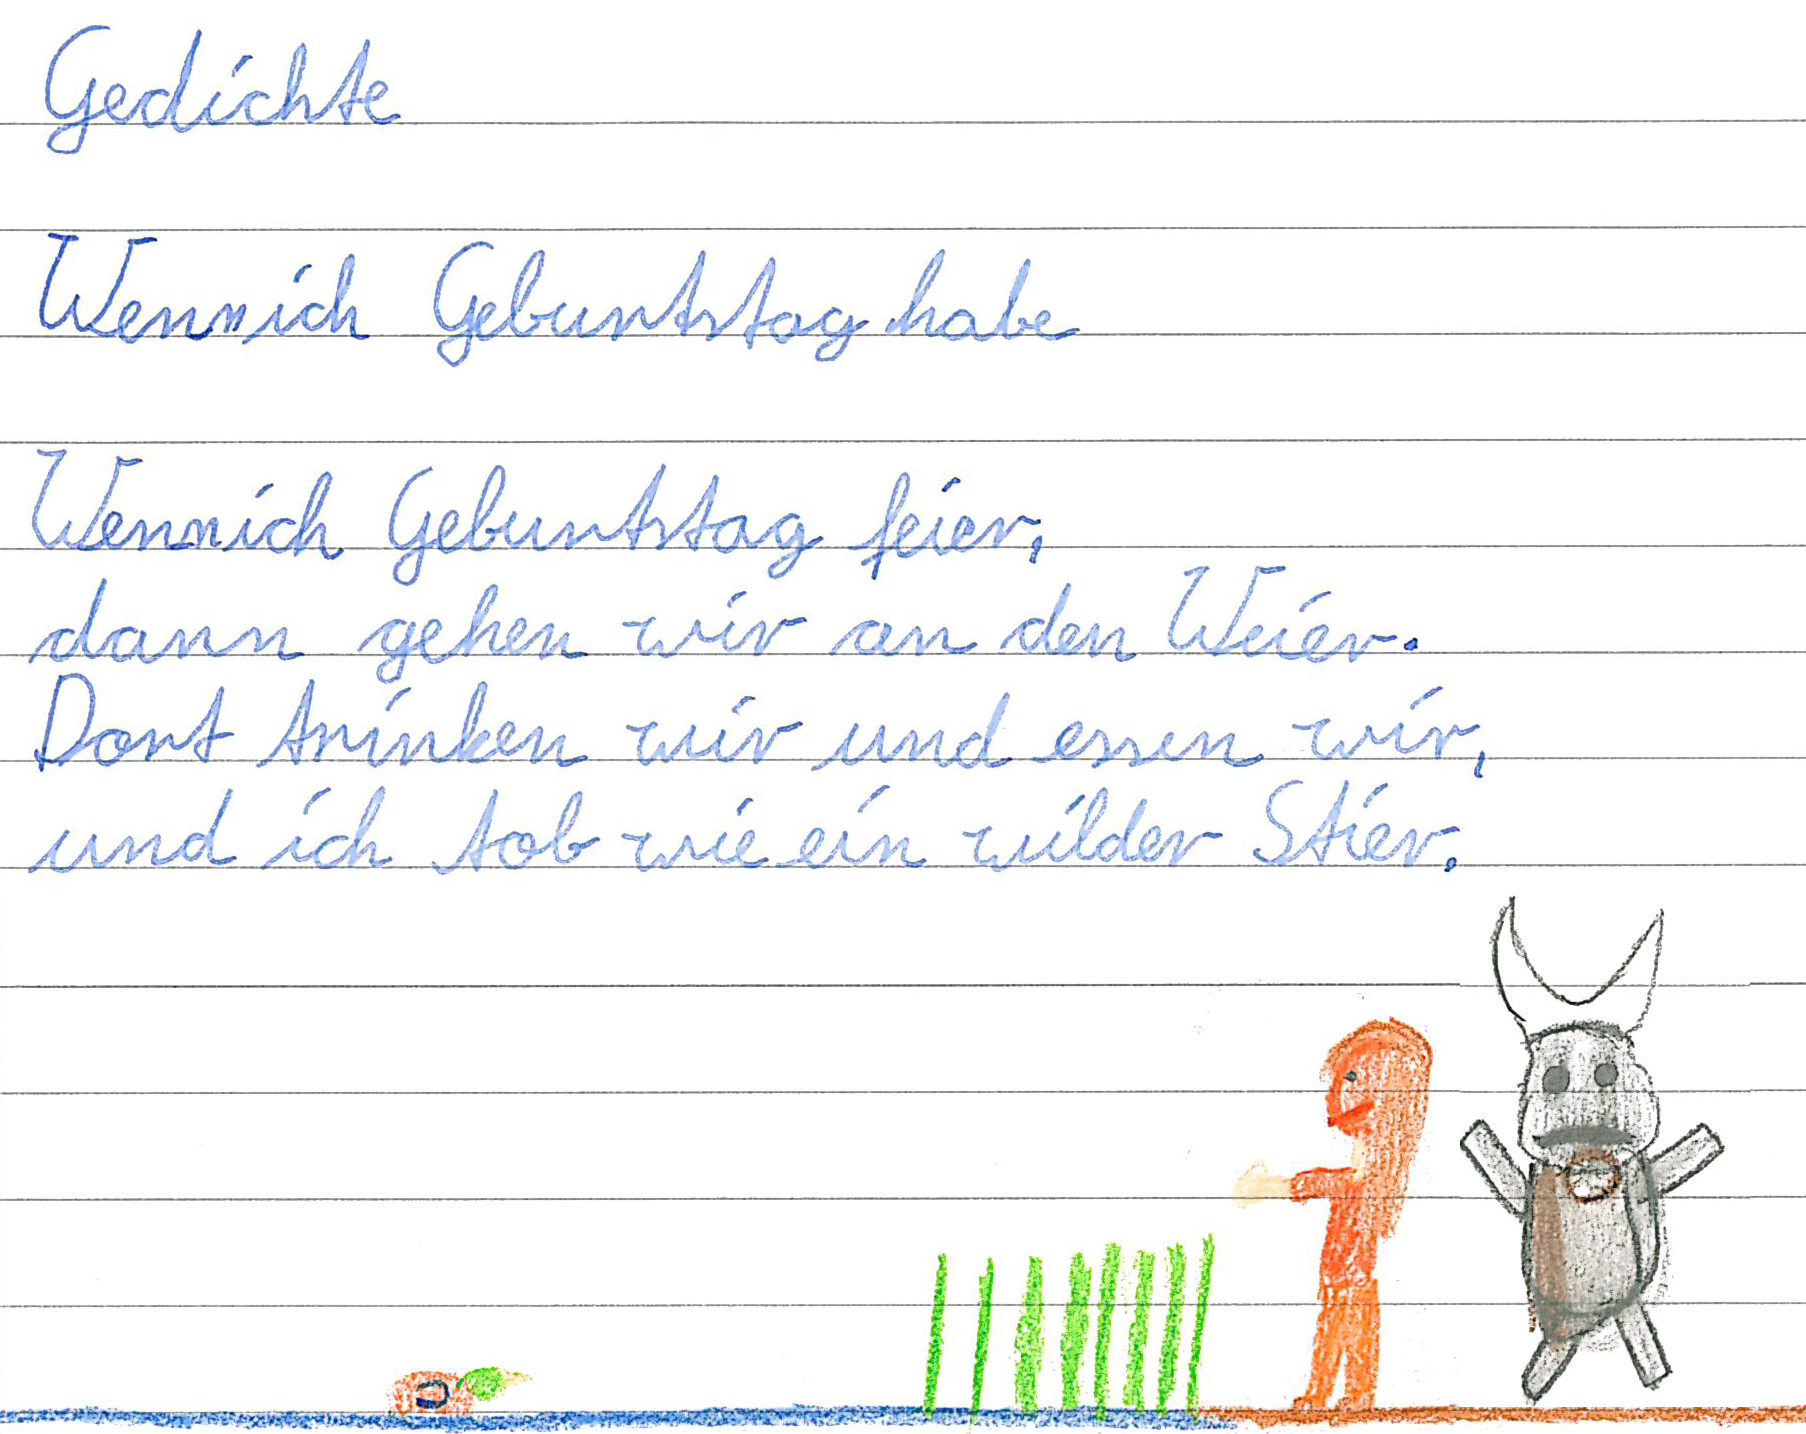 Gedichte
Wenn ich Geburtstag habe
Wenn ich Geburtstag feier,
dann gehen wir an den Weier.
Dort trinken wir und essen wir,
und ich tob wie ein wilder Stier.